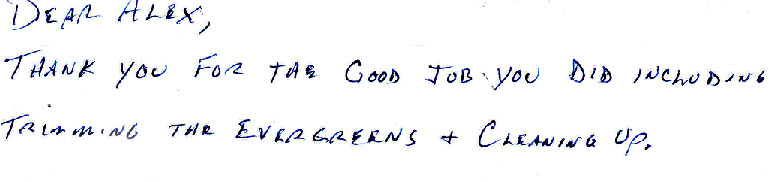 DEAR ALEX,
THANK YOU FOR THE GOOD JOB YOU DID INCLUDING
TRIMMING THE EVERGREENS + CLEANING UP.